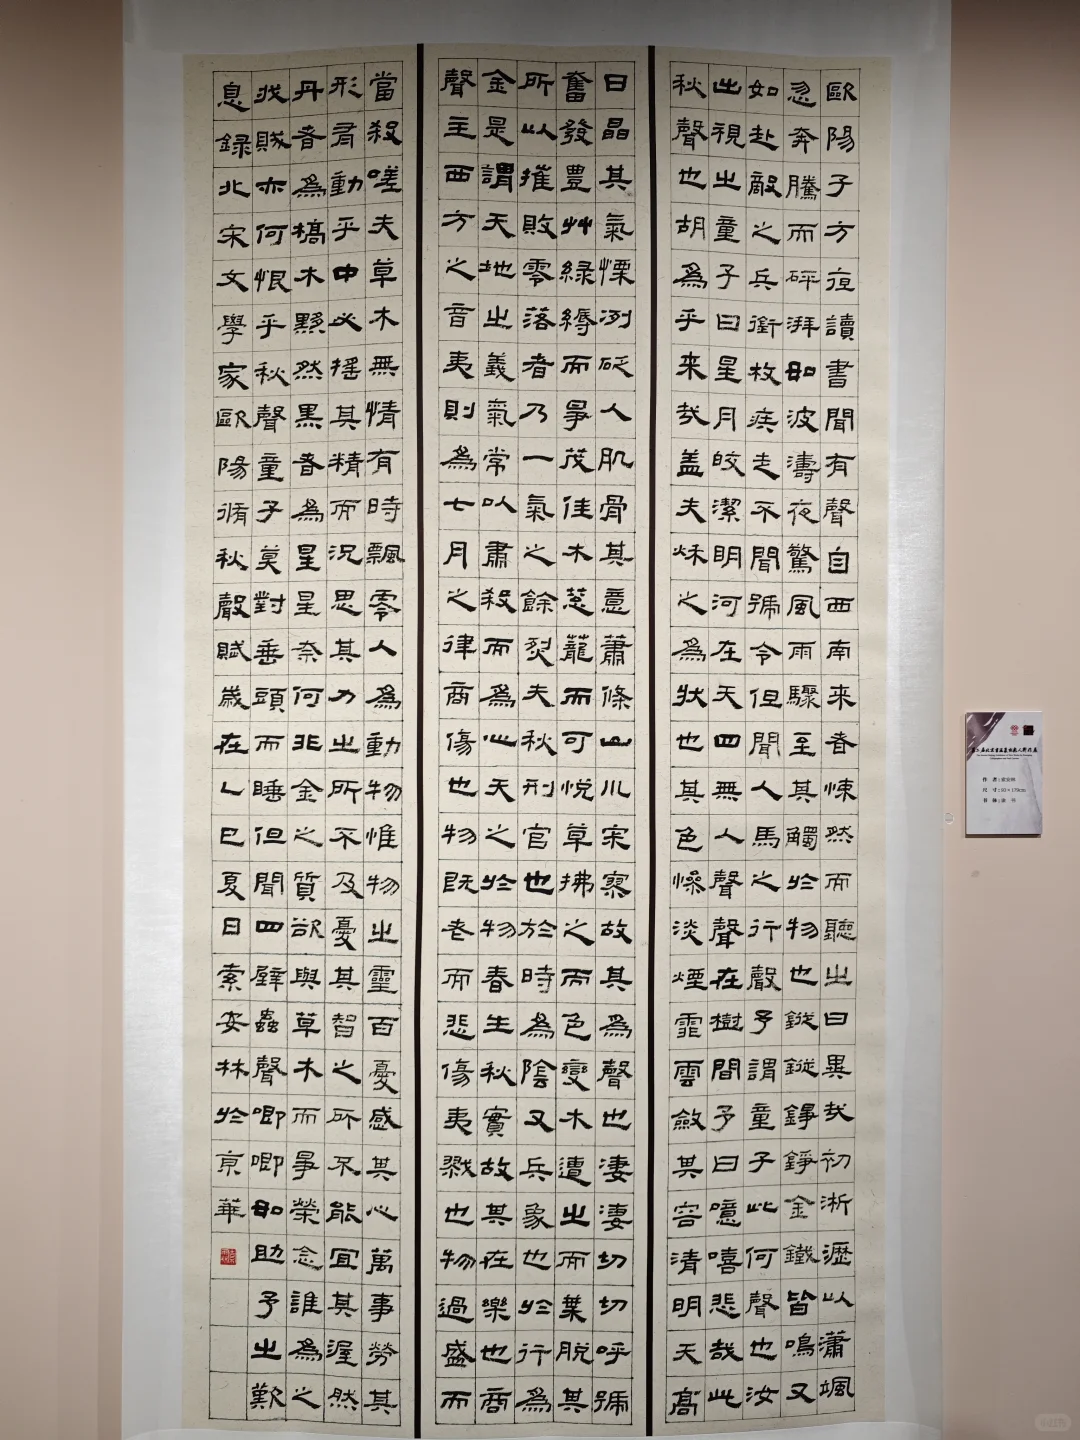 歐陽子方夜讀書聞有聲自西南来者悚然而聽之曰異哉初淅瀝以瀟颯
忽奔騰而砰湃如波濤夜驚風雨驟至其觸於物也鏦鏦錚錚金鐵皆鳴又
如赴敵之兵銜枚疾走不聞號令但聞人馬之行聲予謂童子此何聲也汝
出視之童子曰星月皎潔明河在天四無人聲聲在樹間予曰噫嘻悲哉此
秋聲也胡為乎来哉盖夫秋之為狀也其色慘淡煙霏雲斂其容清明天高
日晶其氣慄冽砭人肌骨其意蕭條山川寂寥故其為聲也淒淒切切呼號
奮發豐艸綠縟而爭茂佳木蔥蘢而可悅草拂之而色變木遭之而葉脫其
所以摧敗零落者乃一氣之餘烈夫秋刑官也於時為陰又兵象也於行為
金是謂天地之義氣常以肅殺而為心天之於物春生秋實故其在樂也商
聲主西方之音夷則為七月之律商傷也物既老而悲傷夷戮也物過盛而
當殺嗟夫草木無情有時飄零人為動物惟物之靈百憂感其心萬事勞其
形有動乎中必搖其精而況思其力之所不及憂其智之所不能宜其渥然
丹者為槁木黟然黑者為星星奈何非金之質欲與草木而爭榮念誰為之
戕賊亦何恨乎秋聲童子莫對垂頭而睡但聞四壁蟲聲唧唧如助予之歎
息録北宋文學家歐陽脩秋聲賦歲在乙巳夏日索安林於京華